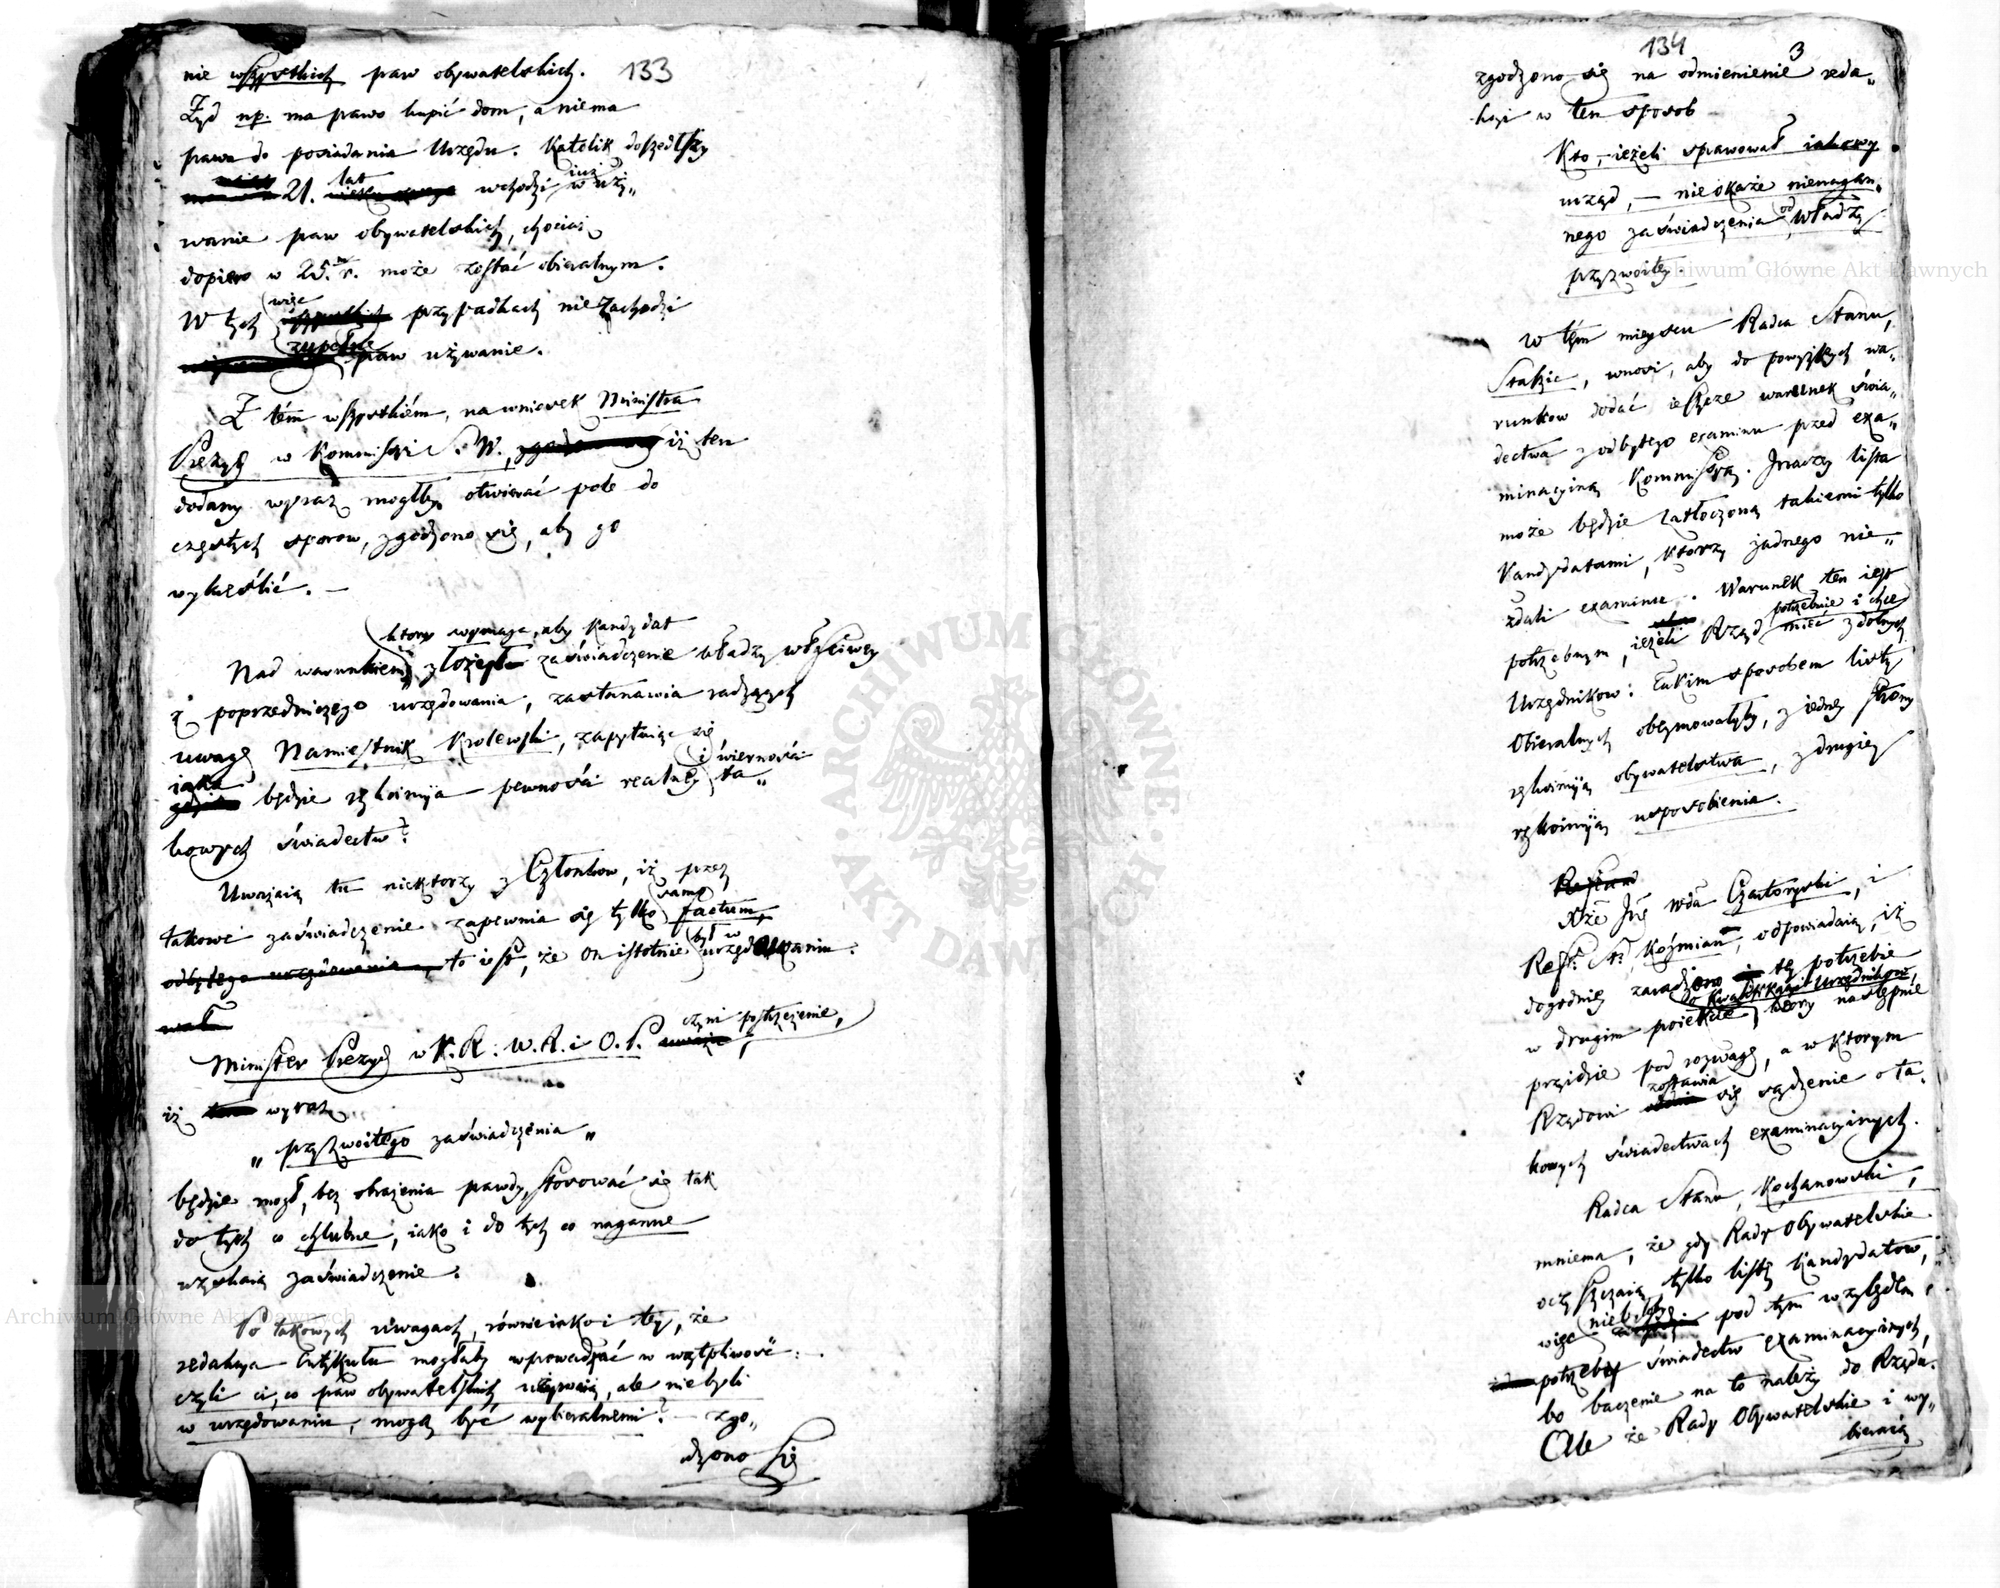 133
nie wszystkich praw obywatelskich.
Żyd np. ma prawo kupić dom, a niema
prawa do posiadania Urzędu. Katolik doszedłszy
21. lat wchodzi iuż w uży„
wanie praw obywatelskich, chociaż
dopiero w 25. r. może zostać obieralnym.
W tych więc przypadkach nie zachodzi
zupełne praw używanie.
Z tém wszystkiém, na wniosek Ministra
Prezyd w Kommissyi S. W., iż ten
dodany wyraz mogłby otwierać pole do
częstych sporow, zgodzono się, aby go
wykréślić. —
ktory wymaga, aby Kandydat
Nad warunkiem złożył zaświadczenie władzy właściwey
z poprzedniczego urzędowania, zastanawia radzących
uwagę Namiestnik Krolewski, zapytuiąc się,
iaka będzie rękoimya pewności realney i wierności ta„
kowych świadectw?
Uważaią tu niektorzy z Członkow, iż przez
takowe zaświadczenie zapewnia się tylko samo factum,
odbytego urzędowania, to iest, że on istotnie był w urzędowaniu.
wał
Minister Prezyd w K. R. W. R. i O. P. czyni postrzeżenie,
iż wyraz
„ przyzwoitego zaświadczenia „
będzie mogł, bez obrażenia prawdy, stosować się tak
do tych co chlubne, iako i do tych co naganne
uzyskaią zaświadczenie.
Po takowych uwagach, rownie iako i tey, że
redakcya Artykułu mogłaby wprowadzać w wątpliwość:
czyli ci, co praw obywatelskich używaią, ale niebyli
w urzędowaniu, mogą być wybieralnemi? — zgo„
dzono się
134
3
zgodzono się na odmienienie reda„
kcyi w ten sposob
Kto, — ieżeli sprawował iakowy
urząd, — nie okaże nienagan„
nego zaświadczenia od Władzy
przyzwoitey
W tém mieyscu Radca Stanu,
Staszic, wnosi, aby do powyższych wa„
runkow dodać ieszcze warunek świa„
dectwa z odbytego examinu przed exa„
minacyiną Kommissyą. Inaczey lista
może będzie zatłoczoną takiemi tylko
Kandydatami, ktorzy żadnego nie„
zdali examinu. Warunek ten iest
potrzebnym, ieżeli Rząd potrzebuie i chce mieć zdolnych
Urzędnikow: Takim sposobem listy
Obieralnych obeymowałyby, z iedney strony
rękoimyą obywatelstwa, z drugiey
rękoimyą usposobienia.
Xże Jrę Wda Czartoryski, i
Refr. St. Koźmian, odpowiadaią, iż
dogodniey zaradzono tey potrzebie
w drugim proiekcie o Kwalifikacyi Urzędnikow, ktory następnie
przyidzie pod rozwagę, a w ktorym
Rządowi zostawia się sądzenie o ta„
kowych świadectwach examinacyinych.
Radca Stanu, Kochanowski,
mniema, że gdy Rady Obywatelskie
oczyszczaią tylko listę kandydatow,
więc nie byłoby pod tym względem
potrzeby świadectw examinacyinych,
bo baczenie na to należy do Rządu.
Ale że Rady Obywatelskie i wy„
bieraią